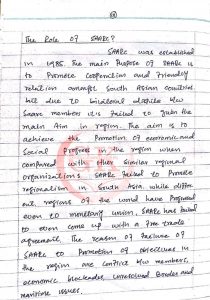 The Role Of SAARC?
SAARC was established
in 1985. The main Purpose Of SAARC is
to Promote Cooperation and Friendly
relation amongst South Asian Countries
but due to bilateral dispute b/w
Saarc members it is failed to
main Aim in region. The aim is to
achieve the Promotion of economic and
Social Progress in the region when
compared with other Similar regional
organizations SAARC failed to Promote
regionalism in South Asia while differ
ent regions of the world have Progressed
even to monetary union. SAARC has failed
to even come up with a free trade
agreement. The reason of Failure of
SAARC to Promotion of objectives in
the region are conflict b/w members,
economic blockades, unresolved Border and
maritime issues.